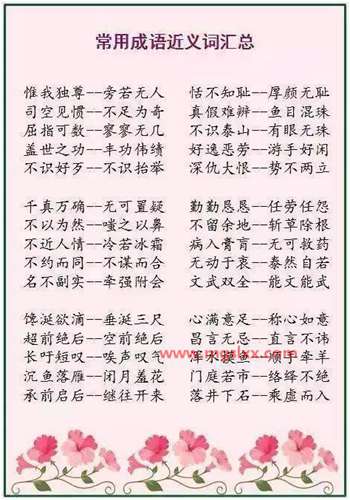 常用成语近义词汇总
惟我独尊--旁若无人 恬不知耻--厚颜无耻
司空见惯--不足为奇 真假难辨--鱼目混珠
屈指可数--寥寥无几 不识泰山--有眼无珠
盖世之功--丰功伟绩 好逸恶劳--游手好闲
不识好歹--不识抬举 深仇大恨--势不两立
千真万确--无可置疑 勤勤恳恳--任劳任怨
不以为然--嗤之以鼻 不留余地--斩草除根
不近人情--冷若冰霜 病入膏肓--无可救药
不约而同--不谋而合 无动于衷--泰然自若
名不副实--牵强附会 文武双全--能文能武
馋涎欲滴--垂涎三尺 心满意足--称心如意
超前绝后--空前绝后 昌言无忌--直言不讳
长吁短叹--唉声叹气 浑水摸鱼--顺手牵羊
沉鱼落雁--闭月羞花 门庭若市--络绎不绝
承前启后--继往开来 落井下石--乘虚而入